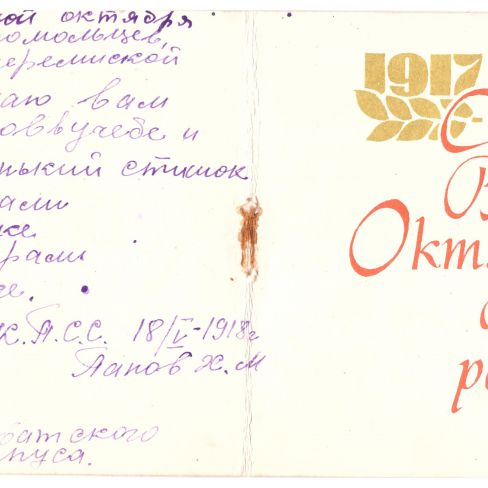 ной октября
омольцев,
еремиской
аю вам
оввучебе и
нький стишок
ами
ке
рами
се.
к.П.С.С. 18/V-1918г
Папов Х.М
батского
пуса.
1917
С
В
Окт
р